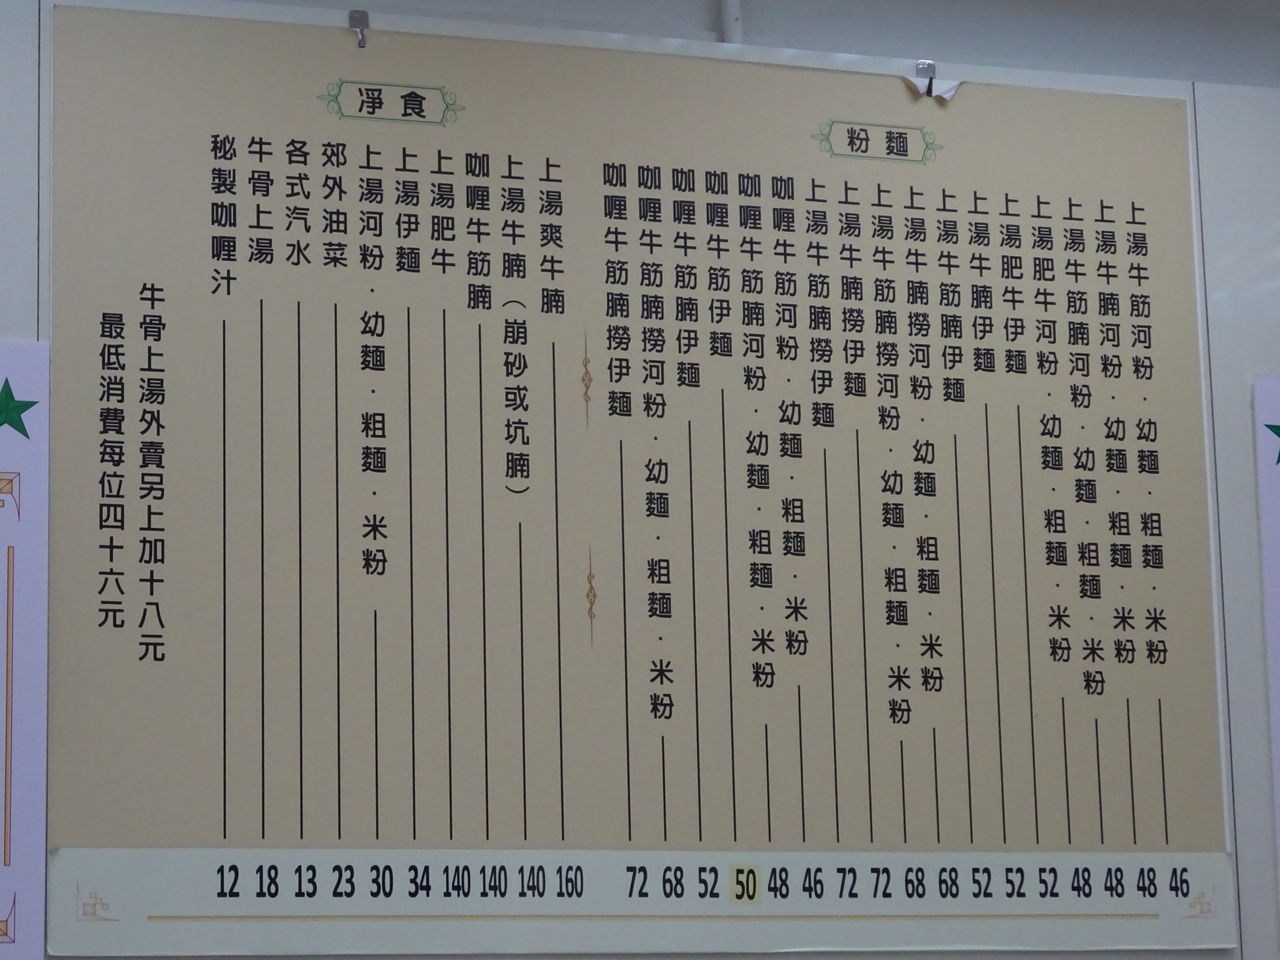 粉麵
上湯牛筋河粉．幼麵．粗麵．米粉 46
上湯牛腩河粉．幼麵．粗麵．米粉 48
上湯牛筋腩河粉．幼麵．粗麵．米粉 48
上湯肥牛河粉．幼麵．粗麵．米粉 48
上湯肥牛伊麵 52
上湯牛腩伊麵 52
上湯牛筋腩伊麵 52
上湯牛腩撈河粉．幼麵．粗麵．米粉 68
上湯牛筋腩撈河粉．幼麵．粗麵．米粉 68
上湯牛腩撈伊麵 72
上湯牛筋腩撈伊麵 72
咖喱牛筋河粉．幼麵．粗麵．米粉 46
咖喱牛筋腩河粉．幼麵．粗麵．米粉 48
咖喱牛筋伊麵 50
咖喱牛筋腩伊麵 52
咖喱牛筋腩撈河粉．幼麵．粗麵．米粉 68
咖喱牛筋腩撈伊麵 72
凈食
上湯爽牛腩 160
上湯牛腩（崩砂或坑腩） 140
咖喱牛筋腩 140
上湯肥牛 140
上湯伊麵 34
上湯河粉．幼麵．粗麵．米粉 30
郊外油菜 23
各式汽水 13
牛骨上湯 18
秘製咖喱汁 12
牛骨上湯外賣另上加十八元
最低消費每位四十六元